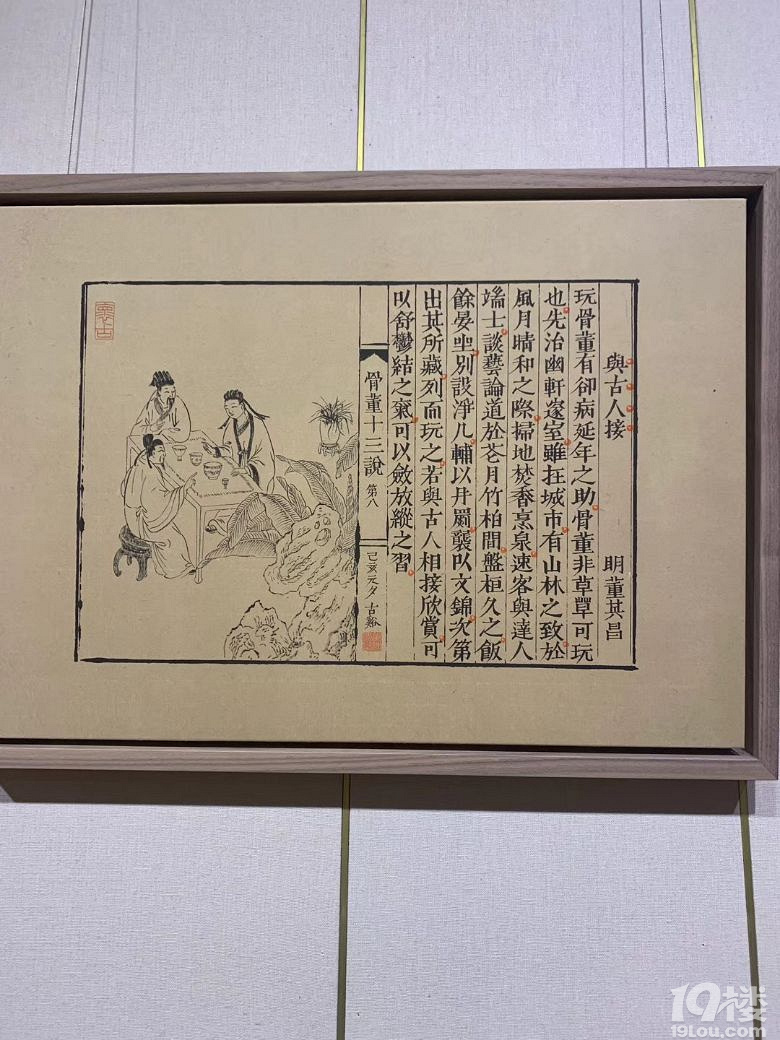 與古人接
明董其昌
玩骨董有卻病延年之助骨董非草草可玩
也先治幽軒邃室雖在城市有山林之致於
風月晴和之際掃地焚香烹泉速客與達人
端士談藝論道於花月竹柏間盤桓久之飯
餘晏坐別設淨几輔以丹罽襲以文錦次第
出其所藏列而玩之若與古人相接欣賞可
以舒鬱結之氣可以斂放縱之習
骨董十三說 第八
己亥元夕 古谿
19楼
19Lou.com